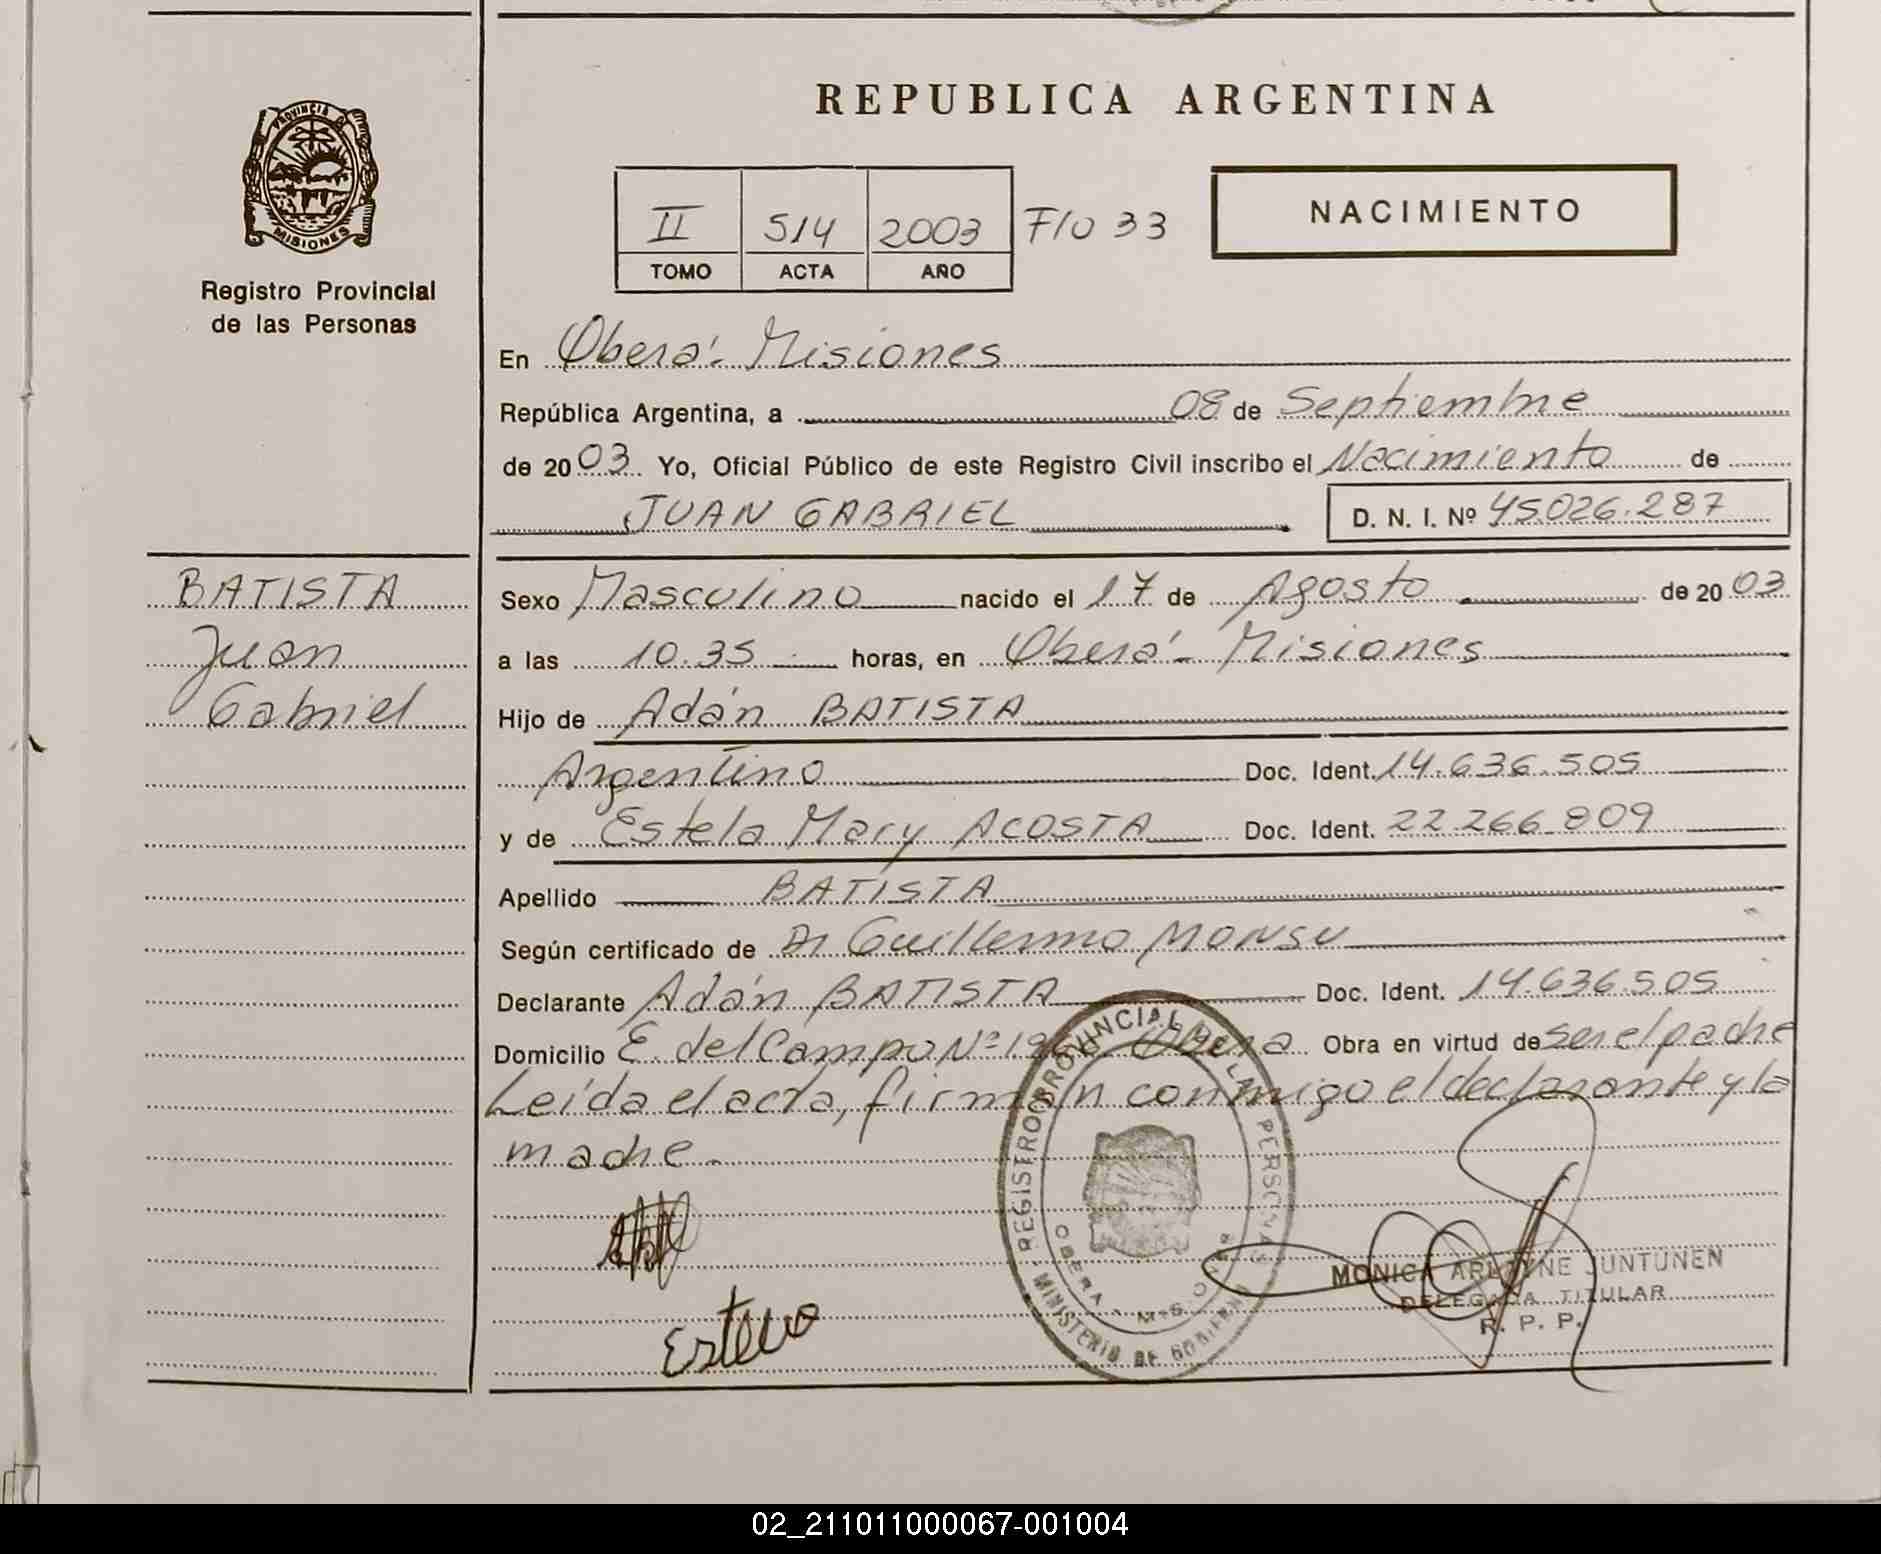 REPUBLICA ARGENTINA
PROVINCIA D
MISIONES
Registro Provincial
de las Personas
II 514 2003 F/o 33
TOMO ACTA AÑO
NACIMIENTO
En Oberá - Misiones
República Argentina, a 08 de Septiembre
de 2003. Yo, Oficial Público de este Registro Civil inscribo el Nacimiento de
JUAN GABRIEL D. N. I. Nº 45.026.287
BATISTA
Juan
Gabriel
Sexo Masculino nacido el 17 de Agosto de 2003
a las 10.35 horas, en Oberá - Misiones
Hijo de Adán BATISTA
Argentino Doc. Ident. 14.636.505
y de Estela Mary ACOSTA Doc. Ident. 22.266.809
Apellido BATISTA
Según certificado de Dr Guillermo MONSU
Declarante Adán BATISTA Doc. Ident. 14.636.505
Domicilio E. del Campo Nº Oberá Obra en virtud de ser el padre
Leída el acta, firman conmigo el declarante y la
madre.
REGISTRO PROVINCIAL DE LAS PERSONAS
MINISTERIO DE GOBIERNO
OBERA - Mis
MONICA ARLEYNE JUNTUNEN
DELEGADA TITULAR
R. P. P.
02_211011000067-001004